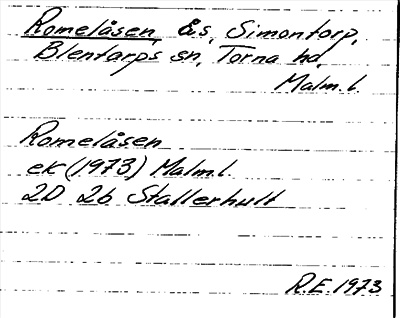 Romelåsen, ås, Simontorp,
Blentarps sn, Torna hd,
Malm.l.
Romelåsen
ek (1973) Malm.l.
2D 2b Stallerhult
R.E. 1973